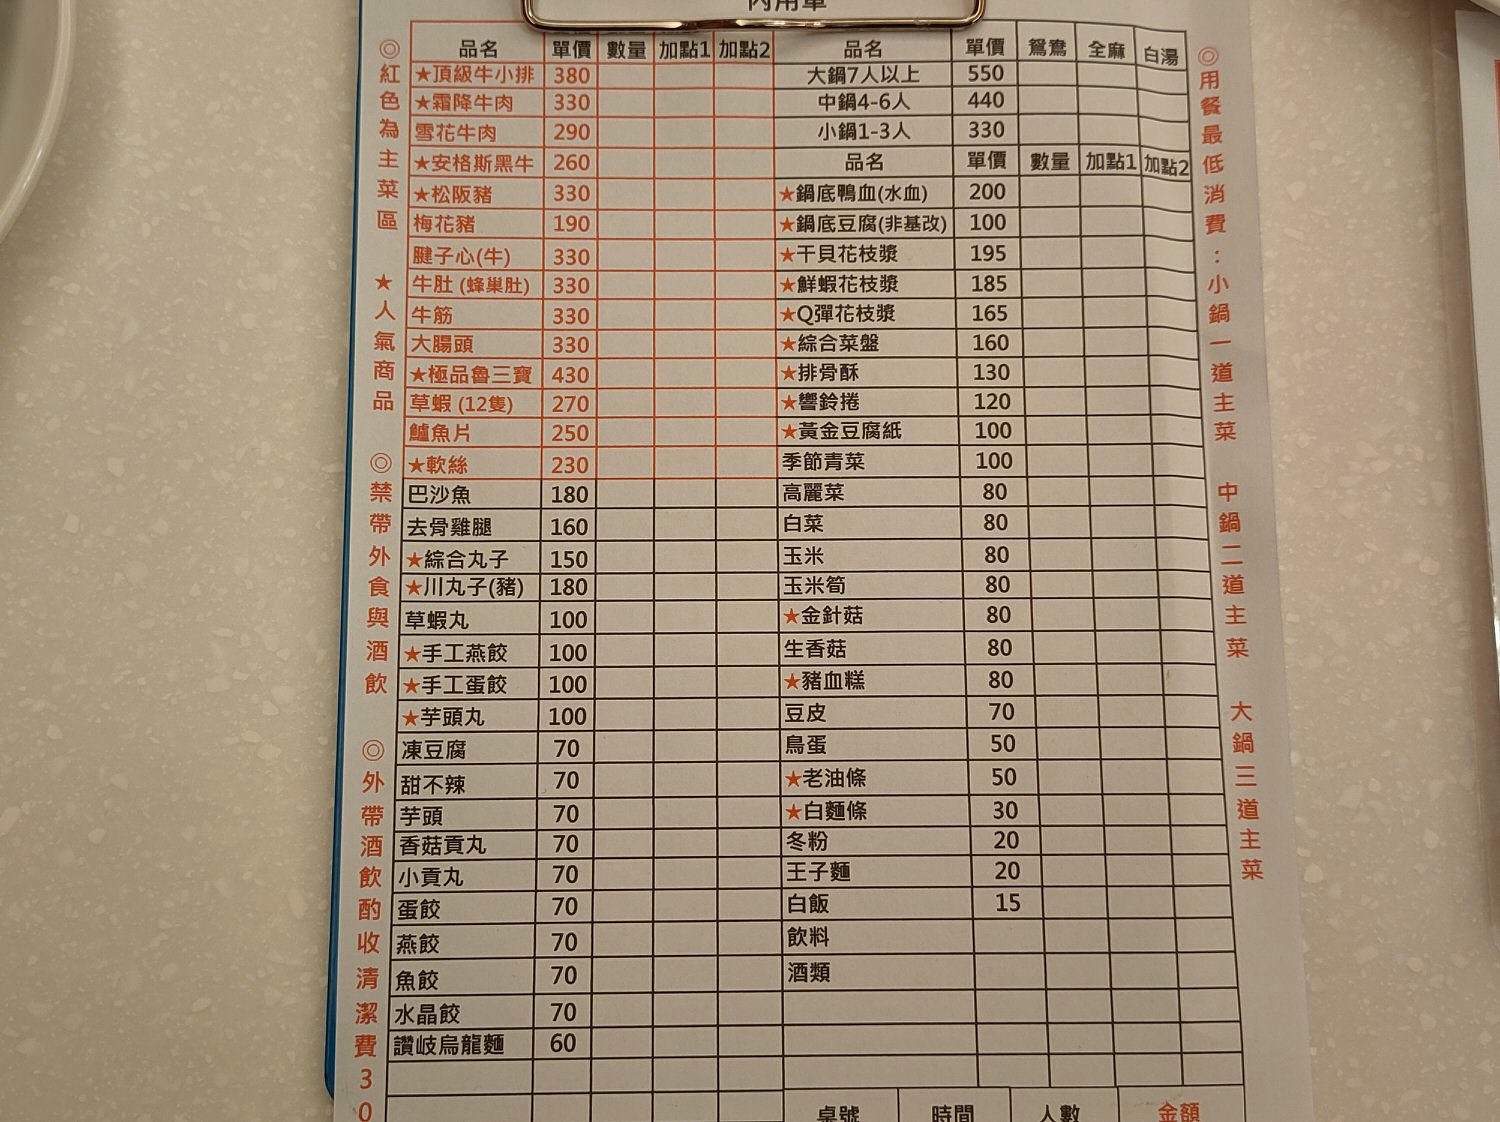 內用單
品名 單價 數量 加點1 加點2
★頂級牛小排 380
★霜降牛肉 330
雪花牛肉 290
★安格斯黑牛 260
★松阪豬 330
梅花豬 190
腱子心(牛) 330
牛肚 (蜂巢肚) 330
牛筋 330
大腸頭 330
★極品魯三寶 430
草蝦 (12隻) 270
鱸魚片 250
★軟絲 230
巴沙魚 180
去骨雞腿 160
★綜合丸子 150
★川丸子(豬) 180
草蝦丸 100
★手工燕餃 100
★手工蛋餃 100
★芋頭丸 100
凍豆腐 70
甜不辣 70
芋頭 70
香菇貢丸 70
小貢丸 70
蛋餃 70
燕餃 70
魚餃 70
水晶餃 70
讚岐烏龍麵 60
品名 單價 鴛鴦 全麻 白湯
大鍋7人以上 550
中鍋4-6人 440
小鍋1-3人 330
品名 單價 數量 加點1 加點2
★鍋底鴨血(水血) 200
★鍋底豆腐(非基改) 100
★干貝花枝漿 195
★鮮蝦花枝漿 185
★Q彈花枝漿 165
★綜合菜盤 160
★排骨酥 130
★響鈴捲 120
★黃金豆腐紙 100
季節青菜 100
高麗菜 80
白菜 80
玉米 80
玉米筍 80
★金針菇 80
生香菇 80
★豬血糕 80
豆皮 70
鳥蛋 50
★老油條 50
★白麵條 30
冬粉 20
王子麵 20
白飯 15
飲料
酒類
桌號 時間 人數 金額
◎紅色為主菜區 ★人氣商品 ◎禁帶外食與酒飲 ◎外帶酒飲酌收清潔費30
◎用餐最低消費:小鍋一道主菜 中鍋二道主菜 大鍋三道主菜